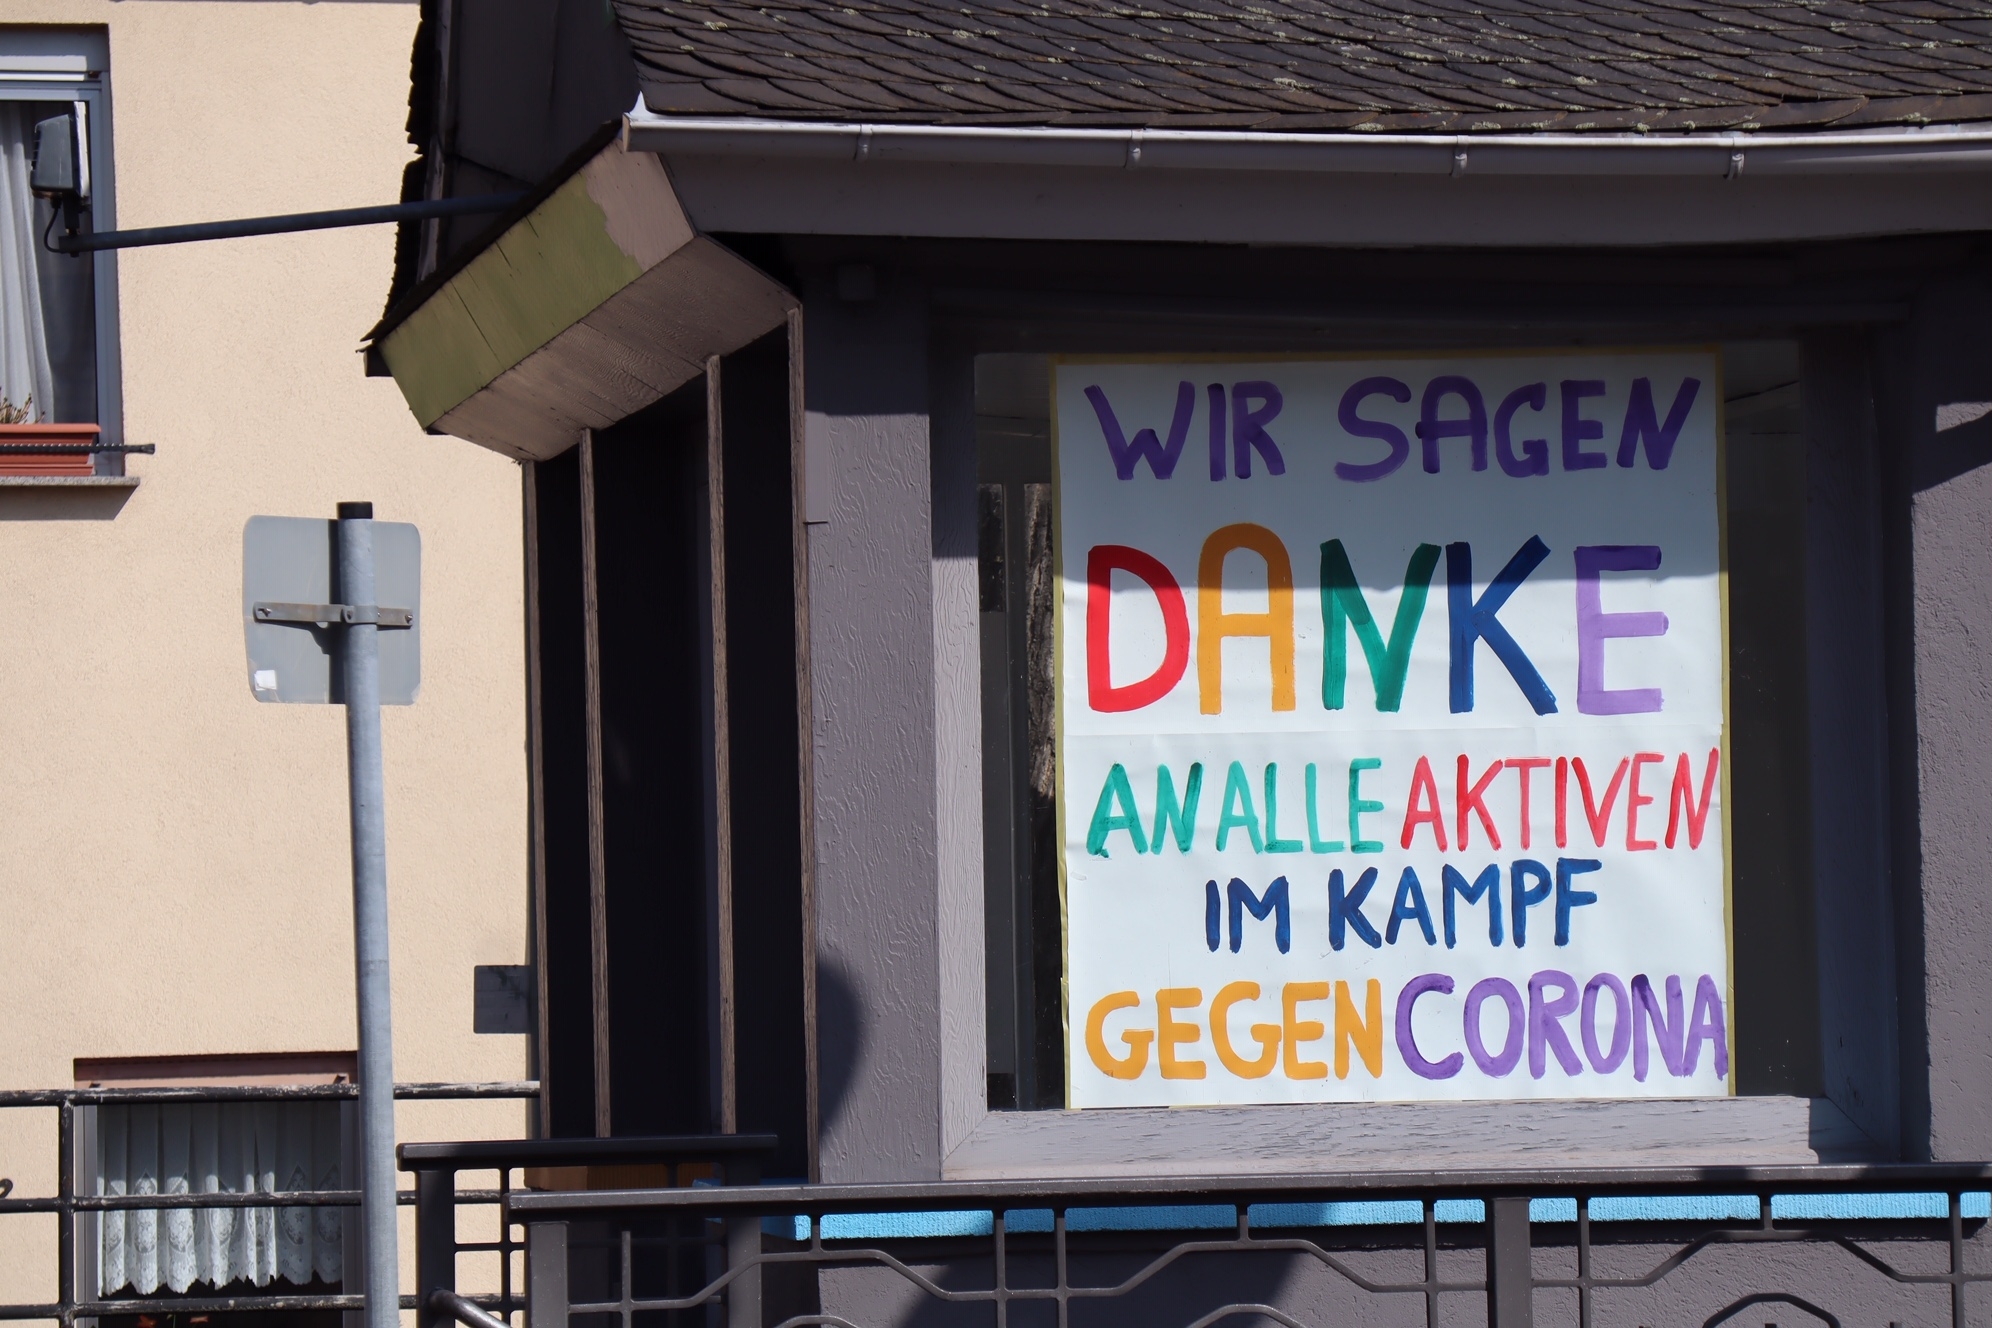 WIR SAGEN
DANKE
AN ALLE AKTIVEN
IM KAMPF
GEGEN CORONA